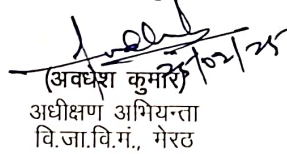 25/02/25
(अवधेश कुमार)
अधीक्षण अभियन्ता
वि.जा.वि.मं., मेरठ